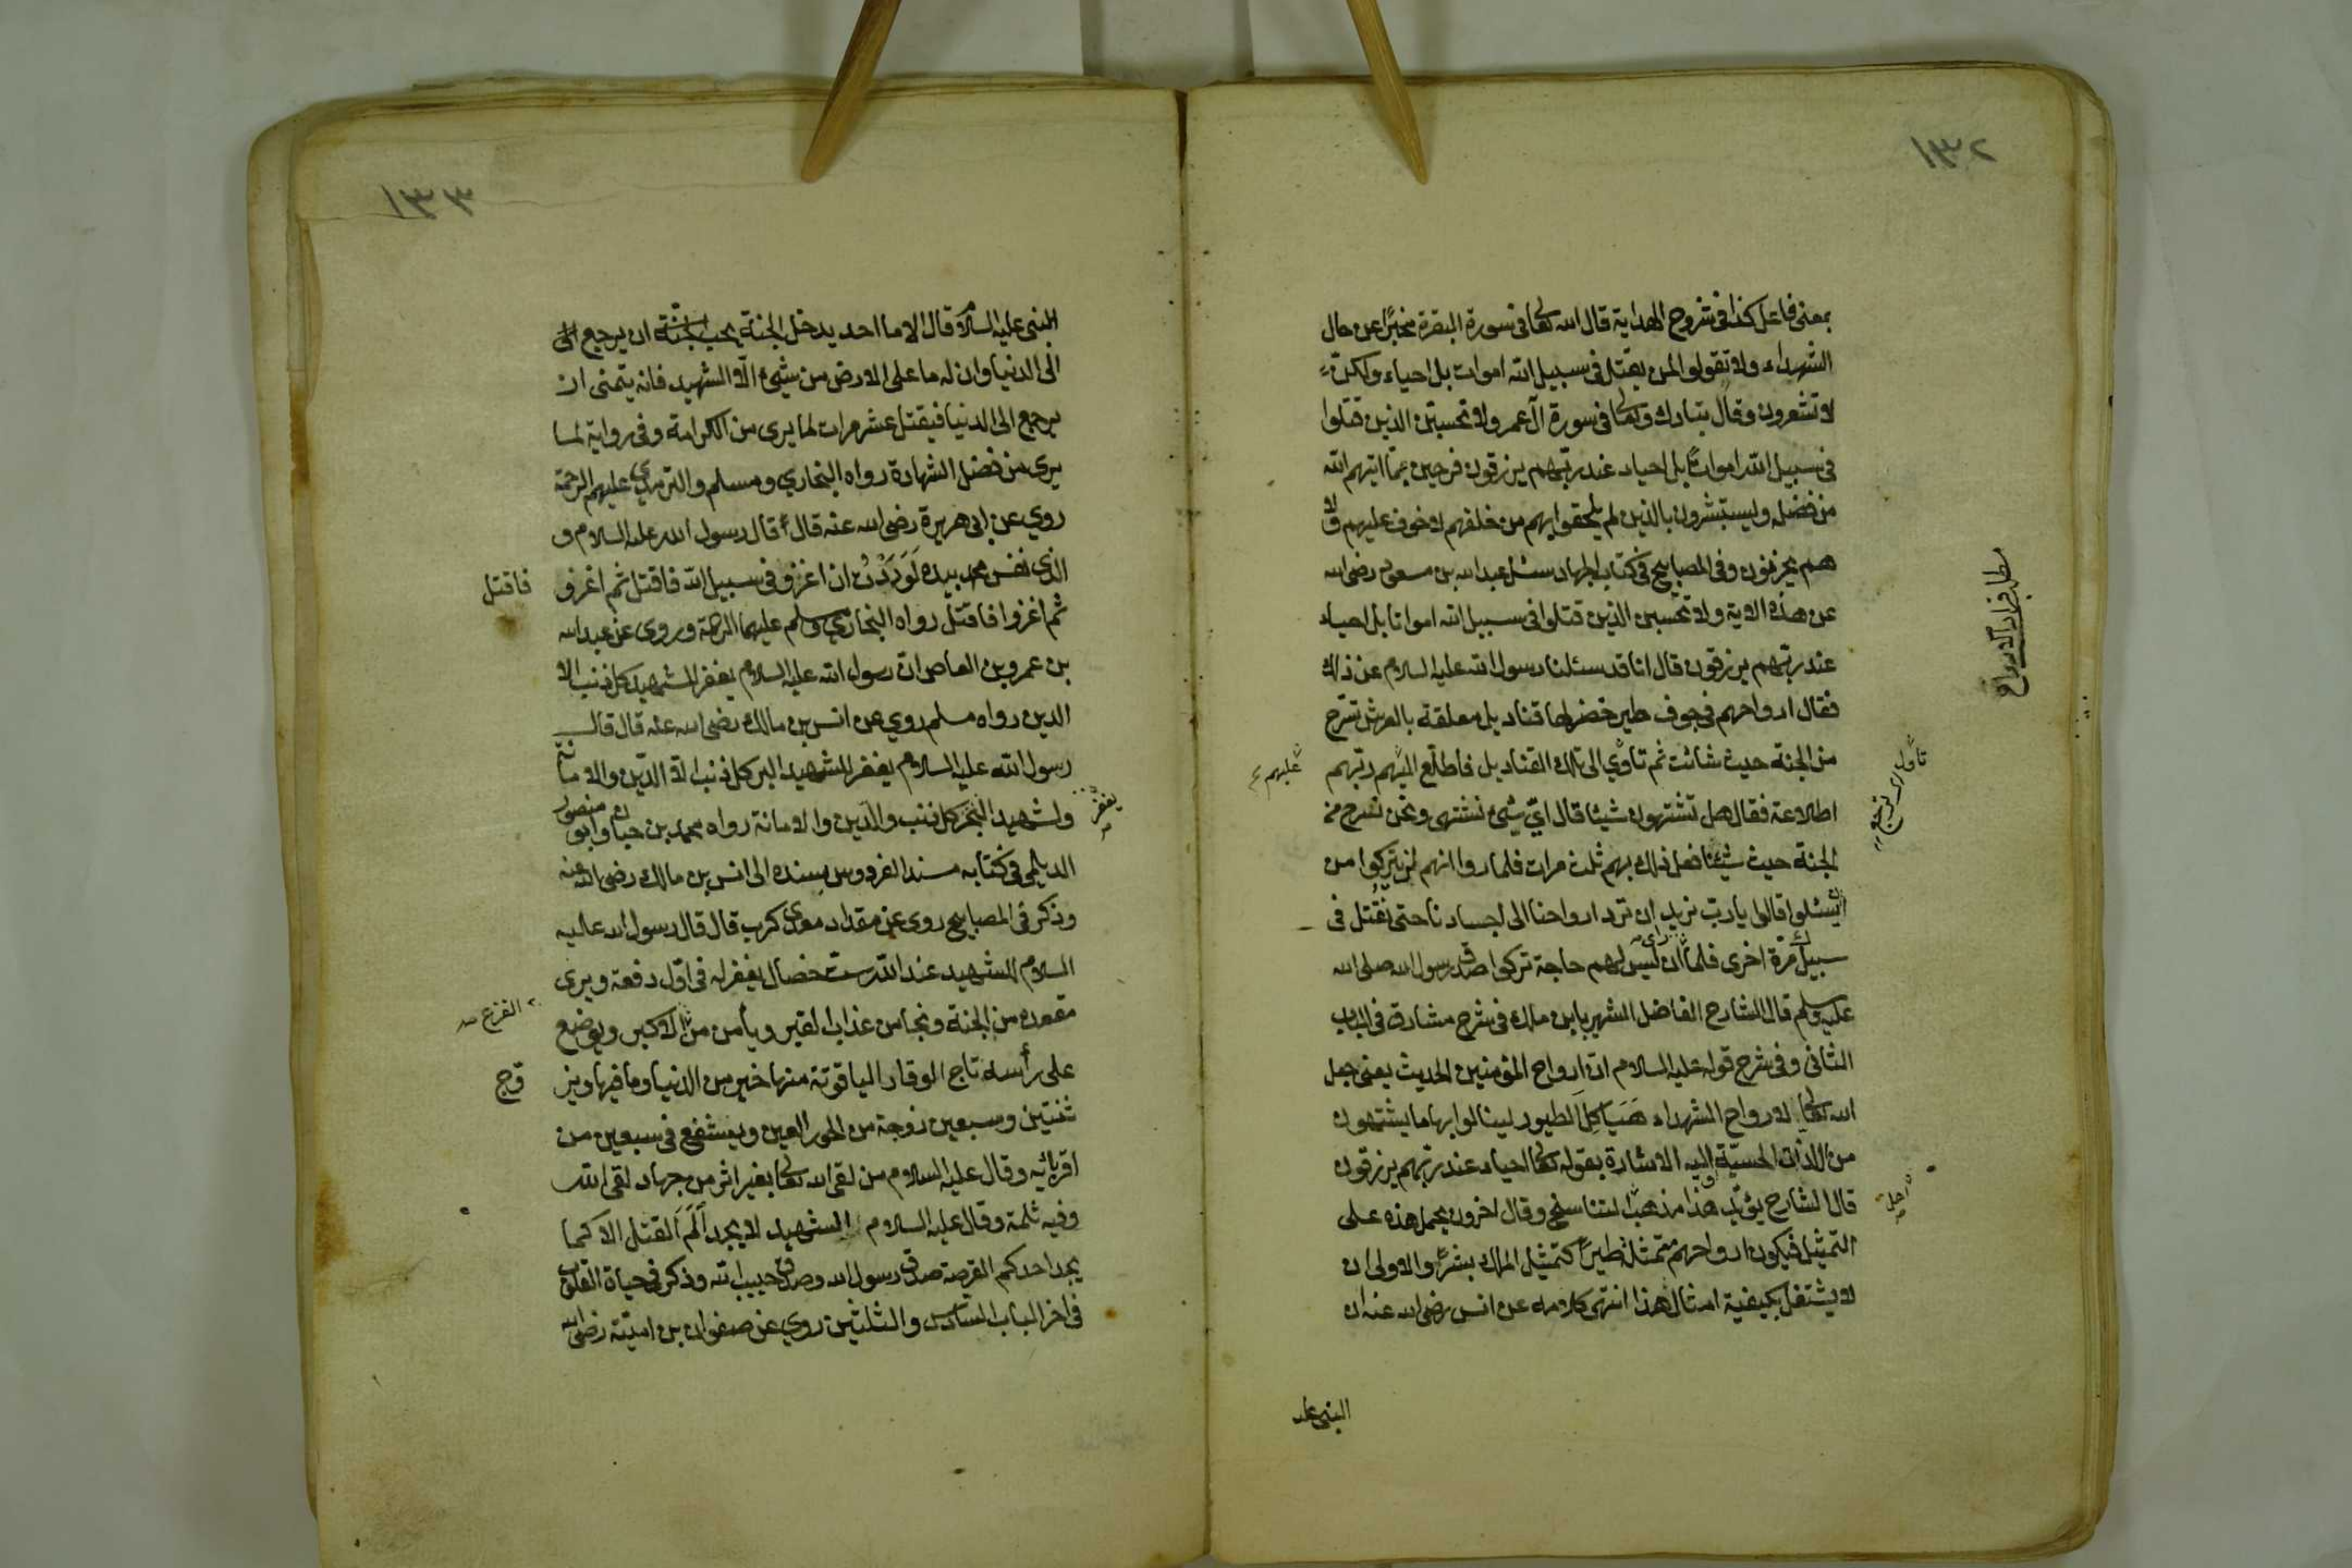 ١٣٢
بمعنى فاعل كذا فى شروح الهداية قال الله تعا فى سورة البقرة مخبرًا عن حال
الشهداء ولا تقولوا لمن يقتل فى سبيل الله اموات بل احياء ولكن
لا تشعرون وقال تبارك وتعا فى سورة آل عمر ولا تحسبن الذين قتلوا
فى سبيل الله امواتًا بل احياء عند ربهم يرزقون فرحين بما اتيهم الله
من فضله ويستبشرون بالذين لم يلحقوا بهم من خلفهم لا خوف عليهم ولا
هم يحزنون وفى المصابيح فى كتاب الجهاد سئل عبد الله بن مسعود رضى الله
عن هذه الاية ولا تحسبن الذين قتلوا فى سبيل الله امواتا بل احياء
عند ربهم يرزقون قال انا قد سئلنا رسول الله عليه السلام عن ذلك
فقال ارواحهم فى جوف طير خضر لها قناديل معلقة بالعرش تسرح
من الجنة حيث شائت ثم تأوي الى تلك القناديل فاطلع اليهم ربهم
عليهم
اطلاعة فقال هل تشتهون شيئا قال اىّ شيئ نشتهى ونحن نسرح من
الجنة حيث شئنا فعل ذلك بهم ثلث مرات فلما راوا انهم لن يتركوا من
ان يسئلوا قالوا يا رب نريد ان ترد ارواحنا الى اجسادنا حتى نقتل فى
سبيلك مرة اخرى فلما راى ان ليس لهم حاجة تركوا صدق رسول الله صلى الله
عليه وسلم قال الشارح الفاضل الشهير بابن مالك فى شرح مشارق فى الباب
الثانى وفى شرح قوله عليه السلام ان ارواح المؤمنين الحديث يعنى جعل
الله تعا لارواح الشهداء هَيَاكِلَ الطيور لينالوا بها ما يشتهون
من اللذات الحسيّة واليه الاشارة بقوله تعا احياء عند ربهم يرزقون
قال الشارح يؤيد هذا مذهب التناسخ وقال اخرون يحمل هذه على
التمثيل فيكون ارواحهم متمثلة طيرًا كتمثيل الملك بشرًا والاولى ان
لا يشتغل بكيفية امثال هذا انتهى كلامه عن انس رضى الله عنه ان
النبى عليه
١٣٣
النبى عليه السلام قال الا ما احد يدخل الجنة يحب ان يرجع الى
الى الدنيا وان له ما على الارض من شيئ الا الشهيد فانه يتمنى ان
يرجع الى الدنيا فيقتل عشر مرات لما يرى من الكرامة وفى رواية لما
يرى من فضل الشهادة رواه البخاري ومسلم والترمذي عليهم الرحمة
روي عن ابى هريرة رضى الله عنه قال قال رسول الله عليه السلام و
الذى نفس محمد بيده لَوَدِدْتُ ان اغزو فى سبيل الله فاقتل ثم اغزو
فاقتل
ثم اغزوا فاقتل رواه البخاري ومسلم عليهما الرحمة وروى عن عبد الله
بن عمرو بن العاص ان رسول الله عليه السلام يغفر للشهيد كل ذنب الا
الدين رواه مسلم روي عن انس بن مالك رضى الله عنه قال قال
رسول الله عليه السلام يغفر للشهيد البر كل ذنب الا الدّين والامانة
يغفر
ولشهيد البحر كل ذنب والدّين والامانة رواه محمد بن حبان وابو منصور
الديلمى فى كتابه مسند الفردوس بسنده الى انس بن مالك رضى الله عنه
وذكر فى المصابيح روى عن مقداد معدى كرب قال قال رسول الله عليه
السلام للشهيد عند الله ست خصال يغفر له فى اوّل دفعة ويرى
مقعده من الجنة ونجا من عذاب القبر ويأمن من الاكبر ويوضع
الفزع
على رأسه تاج الوقار الياقوتة منها خير من الدنيا وما فيها ويز
وج
ثنتين وسبعين زوجة من الحور العين ويشفع فى سبعين من
اقربائه وقال عليه السلام من لقى الله تعا بغير اثر من جهاد لقى الله
وفيه ثلمة وقال عليه السلام الشهيد لا يجد اَلَمَ القتل الا كما
يجد احدكم القرصة صدق رسول الله وصدق حبيب الله وذكر فى حياة القلوب
فى اخر الباب السادس والثلثين روي عن صفوان بن اميّة رضى الله